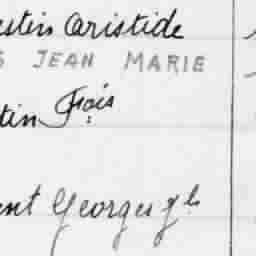 estin Aristide
S JEAN MARIE
tin Frçois
ent Georges